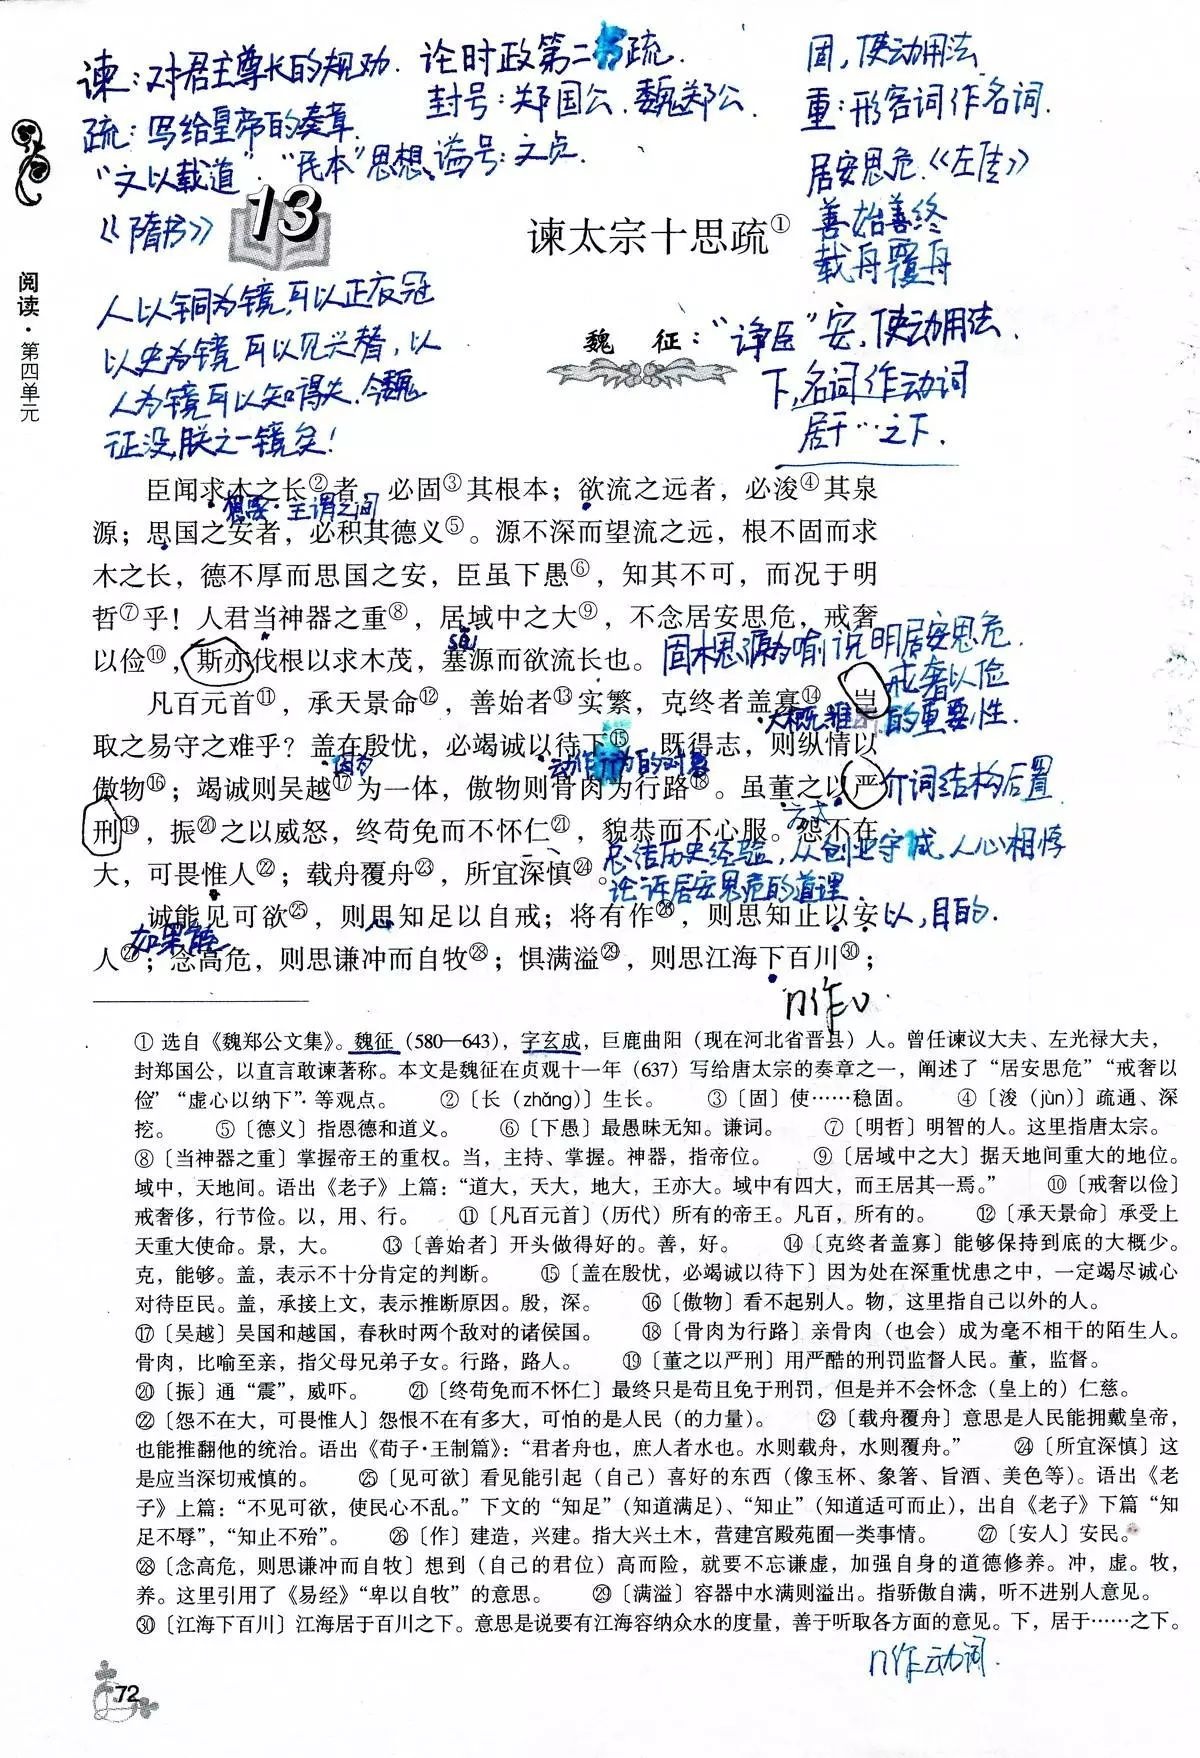 谏：对君主尊长的规劝.
论时政第二书疏.
固，使动用法
疏：写给皇帝的奏章.
封号：郑国公、魏郑公
重：形容词作名词.
“文以载道”. “民本”思想.
谥号：文贞.
居安思危.《左传》
善始善终
《隋书》
13
谏太宗十思疏①
载舟覆舟
阅读·第四单元
人以铜为镜,可以正衣冠
以史为镜 可以见兴替，以
人为镜可以知得失.今魏
征没,朕之一镜矣!
魏 征
：“诤臣”
安，使动用法.
下,名词作动词
居于…之下.
臣闻求木之长②者，必固③其根本；欲流之远者，必浚④其泉
想要.
主谓之间
源；思国之安者，必积其德义⑤。源不深而望流之远，根不固而求
木之长，德不厚而思国之安，臣虽下愚⑥，知其不可，而况于明
哲⑦乎！人君当神器之重⑧，居域中之大⑨，不念居安思危，戒奢
以俭⑩，斯亦伐根以求木茂，塞源而欲流长也。
固本思源为喻 说明居安思危.
戒奢以俭
的重要性.
凡百元首⑪，承天景命⑫，善始者⑬实繁，克终者盖寡⑭。岂
大概
取之易守之难乎？盖在殷忧，必竭诚以待下⑮，既得志，则纵情以
因为
动作行为的对象
傲物⑯；竭诚则吴越⑰为一体，傲物则骨肉为行路⑱。虽董之以严
介词结构后置
方式
刑⑲，振⑳之以威怒，终苟免而不怀仁㉑，貌恭而不心服。怨不在
总结历史经验, 从创业守成 人心相悖
大，可畏惟人㉒；载舟覆舟㉓，所宜深慎㉔。
论诉居安思危的道理.
诚能见可欲㉕，则思知足以自戒；将有作㉖，则思知止以安
以，目的.
如果能
人㉗；念高危，则思谦冲而自牧㉘；惧满溢㉙，则思江海下百川㉚；
n作v
① 选自《魏郑公文集》。魏征（580—643），字玄成，巨鹿曲阳（现在河北省晋县）人。曾任谏议大夫、左光禄大夫，
封郑国公，以直言敢谏著称。本文是魏征在贞观十一年（637）写给唐太宗的奏章之一，阐述了“居安思危”“戒奢以
俭”“虚心以纳下”等观点。 ②〔长（zhǎng)〕生长。 ③〔固〕使……稳固。 ④〔浚（jùn)〕疏通、深
挖。 ⑤〔德义〕指恩德和道义。 ⑥〔下愚〕最愚昧无知。谦词。 ⑦〔明哲〕明智的人。这里指唐太宗。
⑧〔当神器之重〕掌握帝王的重权。当，主持、掌握。神器，指帝位。 ⑨〔居域中之大〕据天地间重大的地位。
域中，天地间。语出《老子》上篇：“道大，天大，地大，王亦大。域中有四大，而王居其一焉。” ⑩〔戒奢以俭〕
戒奢侈，行节俭。以，用、行。 ⑪〔凡百元首〕（历代）所有的帝王。凡百，所有的。 ⑫〔承天景命〕承受上
天重大使命。景，大。 ⑬〔善始者〕开头做得好的。善，好。 ⑭〔克终者盖寡〕能够保持到底的大概少。
克，能够。盖，表示不十分肯定的判断。 ⑮〔盖在殷忧，必竭诚以待下〕因为处在深重忧患之中，一定竭尽诚心
对待臣民。盖，承接上文，表示推断原因。殷，深。 ⑯〔傲物〕看不起别人。物，这里指自己以外的人。
⑰〔吴越〕吴国和越国，春秋时两个敌对的诸侯国。 ⑱〔骨肉为行路〕亲骨肉（也会）成为毫不相干的陌生人。
骨肉，比喻至亲，指父母兄弟子女。行路，路人。 ⑲〔董之以严刑〕用严酷的刑罚监督人民。董，监督。
⑳〔振〕通“震”，威吓。 ㉑〔终苟免而不怀仁〕最终只是苟且免于刑罚，但是并不会怀念（皇上的）仁慈。
㉒〔怨不在大，可畏惟人〕怨恨不在有多大，可怕的是人民（的力量）。 ㉓〔载舟覆舟〕意思是人民能拥戴皇帝，
也能推翻他的统治。语出《荀子·王制篇》：“君者舟也，庶人者水也。水则载舟，水则覆舟。” ㉔〔所宜深慎〕这
是应当深切戒慎的。 ㉕〔见可欲〕看见能引起（自己）喜好的东西（像玉杯、象箸、旨酒、美色等）。语出《老
子》上篇：“不见可欲，使民心不乱。”下文的“知足”（知道满足）、“知止”（知道适可而止），出自《老子》下篇“知
足不辱”，“知止不殆”。 ㉖〔作〕建造，兴建。指大兴土木，营建宫殿苑囿一类事情。 ㉗〔安人〕安民。
㉘〔念高危，则思谦冲而自牧〕想到（自己的君位）高而险，就要不忘谦虚，加强自身的道德修养。冲，虚。牧，
养。这里引用了《易经》“卑以自牧”的意思。 ㉙〔满溢〕容器中水满则溢出。指骄傲自满，听不进别人意见。
㉚〔江海下百川〕江海居于百川之下。意思是说要有江海容纳众水的度量，善于听取各方面的意见。下，居于……之下。
n作动词.
72